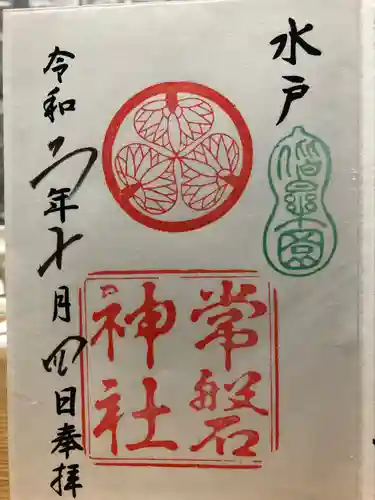 水戸
偕楽園
常磐
神社
令和六年十月四日奉拝